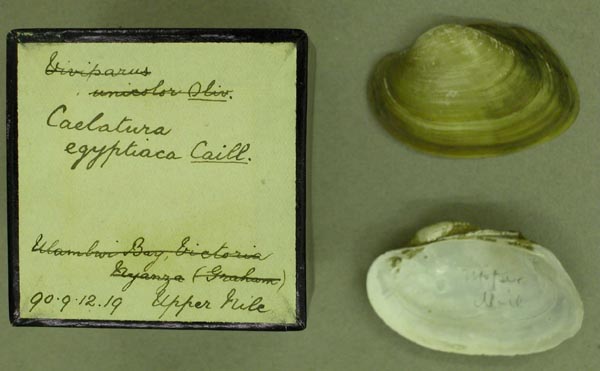 Viviparus
unicolor Oliv.
Caelatura
egyptiaca Caill.
Ulambwi Bay, Victoria
Nyanza (Graham)
90.9.12.19 Upper Nile
Upper
Nile